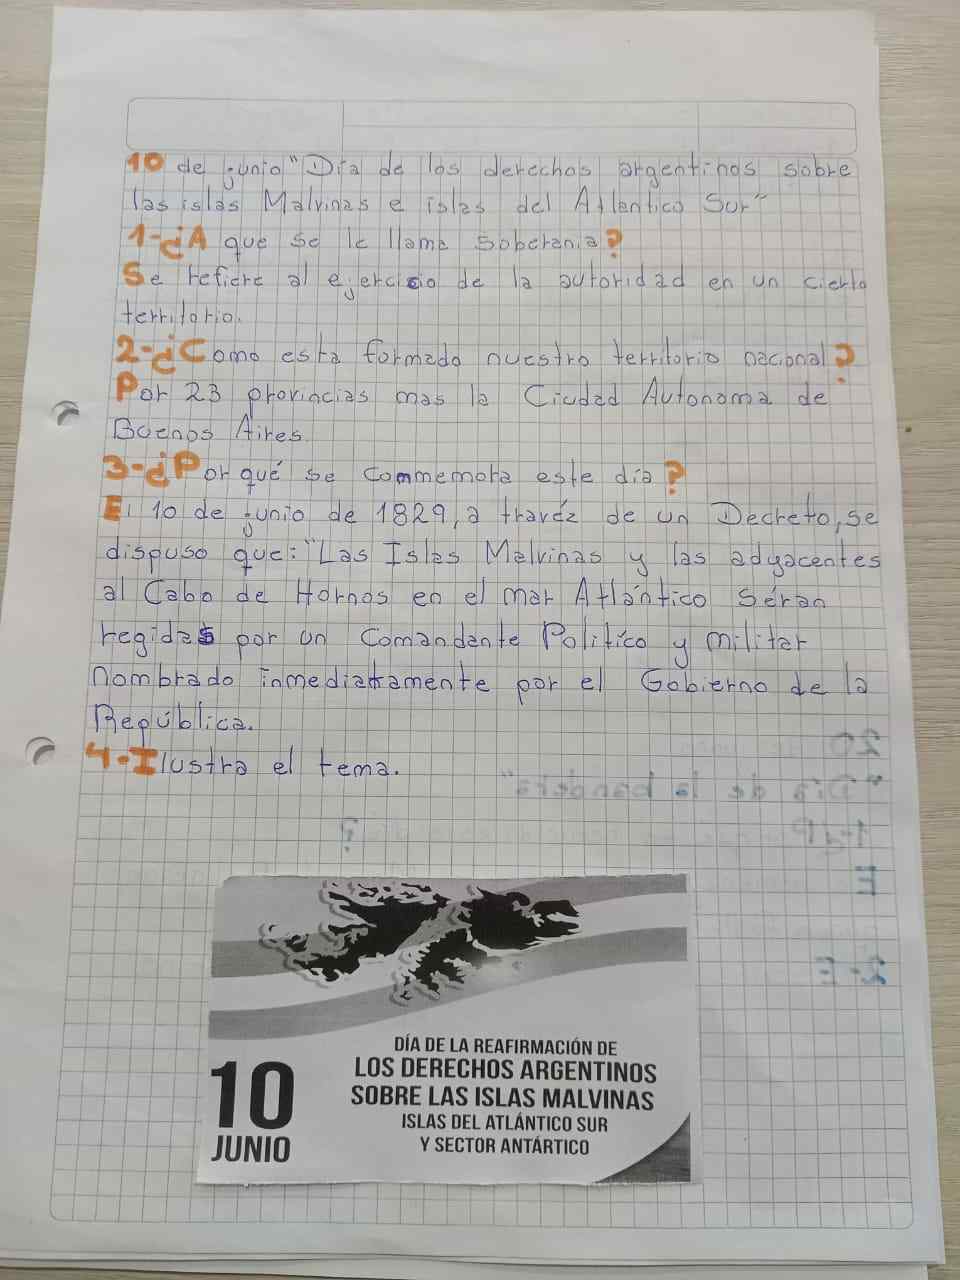 10 de junio "Día de los derechos argentinos sobre
las islas Malvinas e islas del Atlantico Sur"
1-¿A que se le llama soberania?
Se refiere al ejercicio de la autoridad en un cierto
territorio.
2-¿Como esta formado nuestro territorio nacional?
Por 23 provincias mas la Ciudad Autonoma de
Buenos Aires.
3-¿Por qué se commemora este día?
El 10 de junio de 1829, a travéz de un Decreto, se
dispuso que: "Las Islas Malvinas y las adyacentes
al Cabo de Hornos en el mar Atlántico Séran
regidas por un Comandante Político y militar
nombrado inmediatamente por el Gobierno de la
República.
4-Ilustra el tema.
20
"Día de la bandera"
1-¿P
?
E
2-E
10
JUNIO
DÍA DE LA REAFIRMACIÓN DE
LOS DERECHOS ARGENTINOS
SOBRE LAS ISLAS MALVINAS
ISLAS DEL ATLÁNTICO SUR
Y SECTOR ANTÁRTICO